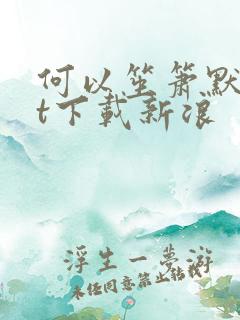 何以笙箫默
t下载新浪
浮生一梦游
未经同意禁止转载